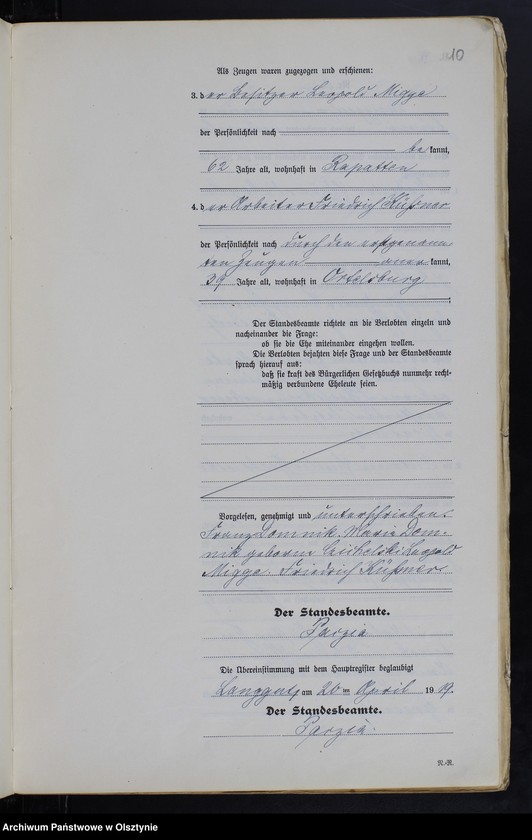 10
Als Zeugen waren zugezogen und erschienen:
3. der Besitzer Leopold Migge
der Persönlichkeit nach
be kannt,
62 Jahre alt, wohnhaft in Rapatten
4. der Arbeiter Friedrich Küßner
der Persönlichkeit nach durch den erstgenann
ten Zeugen aner kannt,
39 Jahre alt, wohnhaft in Ortelsburg
Der Standesbeamte richtete an die Verlobten einzeln und
nacheinander die Frage:
ob sie die Ehe miteinander eingehen wollen.
Die Verlobten bejahten diese Frage und der Standesbeamte
sprach hierauf aus:
daß sie kraft des Bürgerlichen Gesetzbuchs nunmehr recht-
mäßig verbundene Eheleute seien.
Vorgelesen, genehmigt und unterschrieben
Franz Domnik. Maria Dom-
nik geborene Leopold
Migge. Friedrich Küßner
Der Standesbeamte.
Parzia
Die Übereinstimmung mit dem Hauptregister beglaubigt
Langgut, am 26 ten April 1909.
Der Standesbeamte.
Parzia.
N.-R.
Archiwum Państwowe w Olsztynie